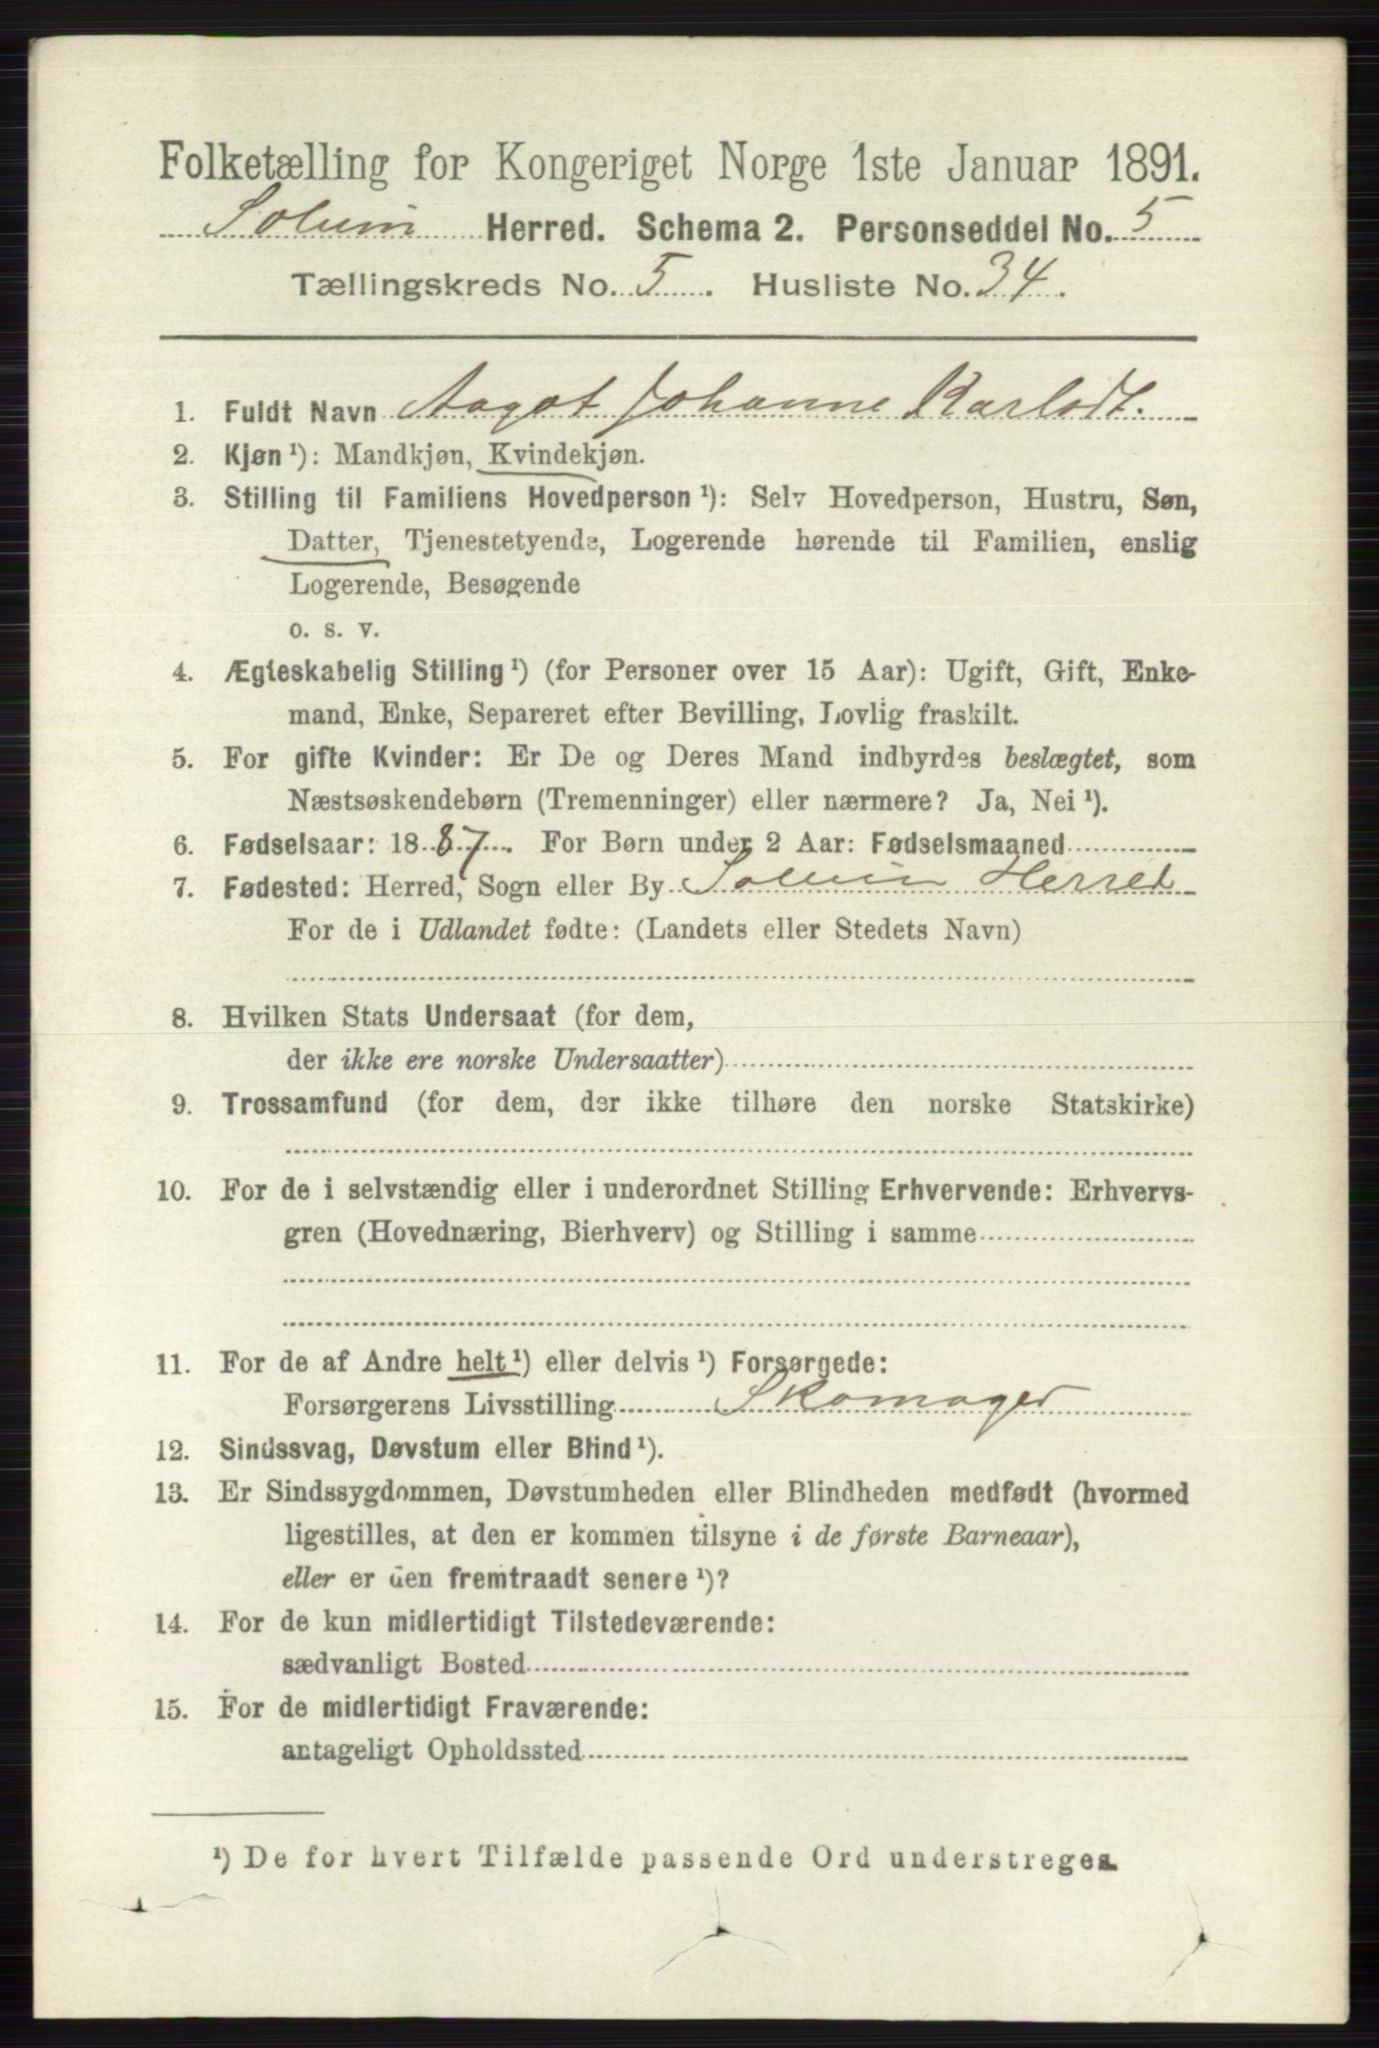 Folketælling for Kongeriget Norge 1ste Januar 1891.
Solum Herred. Schema 2. Personseddel No. 5
Tællingskreds No. 5. Husliste No. 34.
1. Fuldt Navn Aagot Johanne Karlsdt.
2. Kjøn ¹): Mandkjøn, Kvindekjøn.
3. Stilling til Familiens Hovedperson ¹): Selv Hovedperson, Hustru, Søn,
Datter, Tjenestetyende, Logerende hørende til Familien, enslig
Logerende, Besøgende
o. s. v.
4. Ægteskabelig Stilling ¹) (for Personer over 15 Aar): Ugift, Gift, Enke-
mand, Enke, Separeret efter Bevilling, Lovlig fraskilt.
5. For gifte Kvinder: Er De og Deres Mand indbyrdes beslægtet, som
Næstsøskendebørn (Tremenninger) eller nærmere? Ja, Nei ¹).
6. Fødselsaar: 1887. For Børn under 2 Aar: Fødselsmaaned
7. Fødested: Herred, Sogn eller By Solum Herred
For de i Udlandet fødte: (Landets eller Stedets Navn)
8. Hvilken Stats Undersaat (for dem,
der ikke ere norske Undersaatter)
9. Trossamfund (for dem, der ikke tilhøre den norske Statskirke)
10. For de i selvstændig eller i underordnet Stilling Erhvervende: Erhvervs-
gren (Hovednæring, Bierhverv) og Stilling i samme
11. For de af Andre helt ¹) eller delvis ¹) Forsørgede:
Forsørgerens Livsstilling Skomager
12. Sindssvag, Døvstum eller Blind ¹).
13. Er Sindssygdommen, Døvstumheden eller Blindheden medfødt (hvormed
ligestilles, at den er kommen tilsyne i de første Barneaar),
eller er den fremtraadt senere ¹)?
14. For de kun midlertidigt Tilstedeværende:
sædvanligt Bosted
15. For de midlertidigt Fraværende:
antageligt Opholdssted
¹) De for hvert Tilfælde passende Ord understreges.